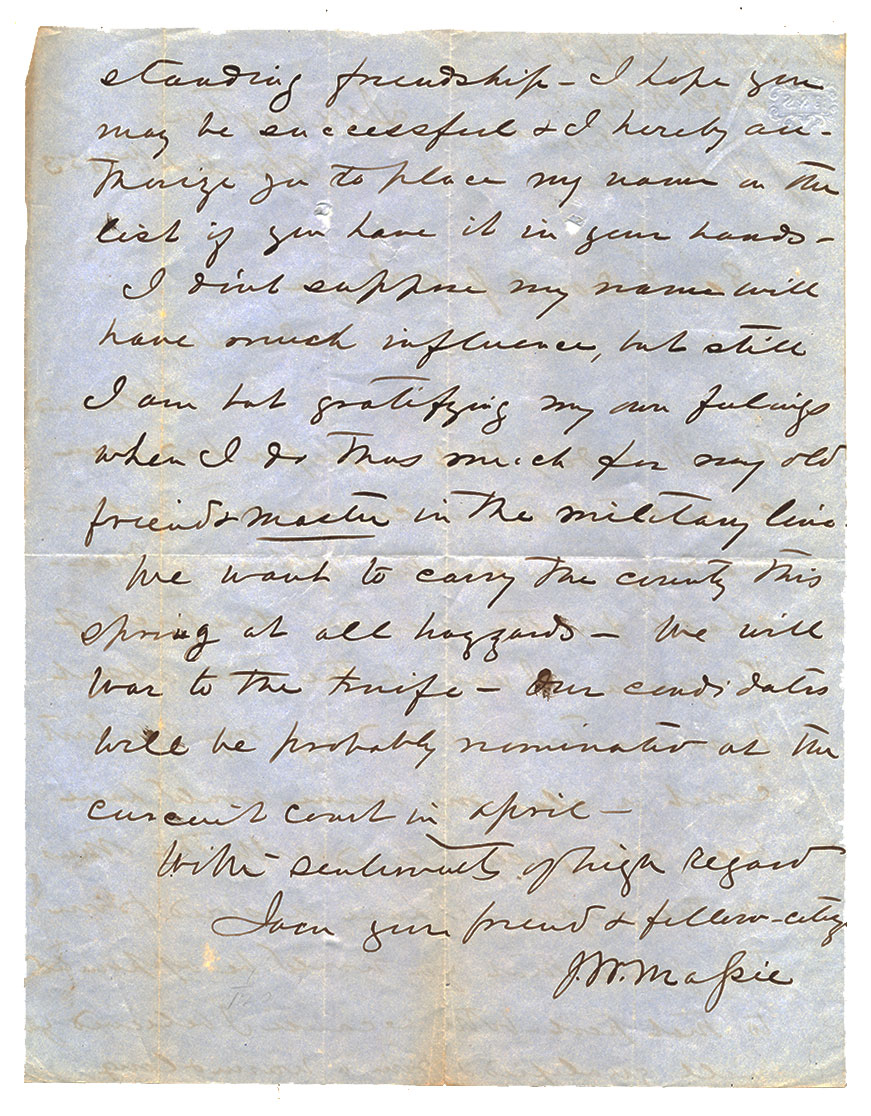 standing friendship – I hope you
may be successful & I hereby au-
thorize you to place my name on the
list if you have it in your hands –
I dont suppose my name will
have much influence, but still
I am but gratifying my own feelings
when I do thus much for my old
friend & master in the military line.
We want to carry the county this
spring at all hazzards – We will
War to the knife – Our candidates
will be probably nominated at the
curcuit court in april –
With sentiments of high regard
I am your friend & fellow-citiz
J. W. Massie